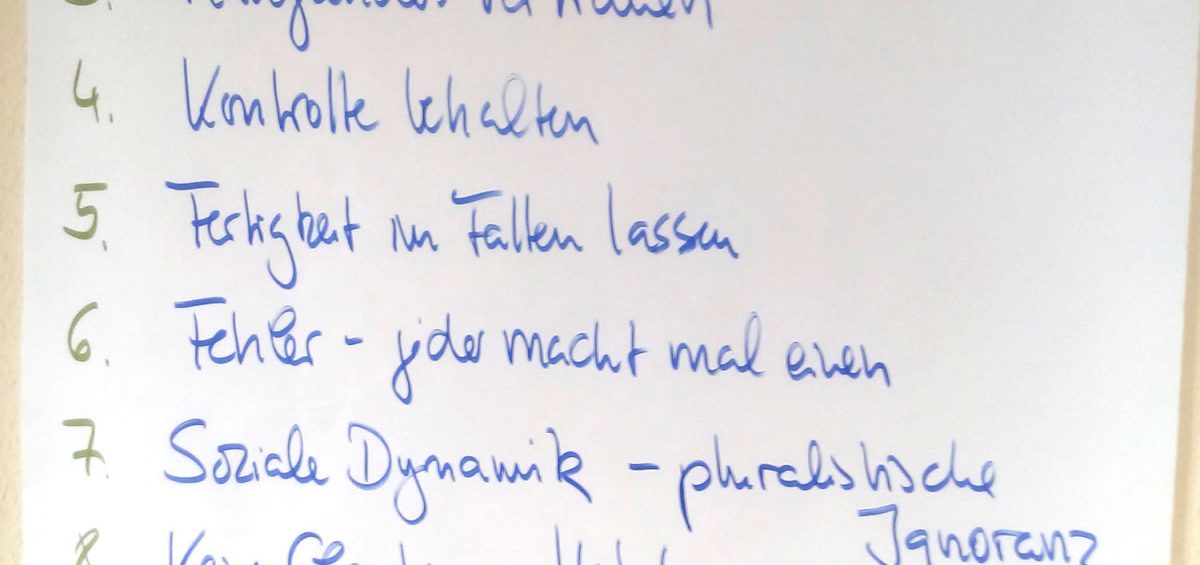 3.
4. Kontrolle behalten
5. Fertigkeit im Fallen lassen
6. Fehler - jeder macht mal einen
7. Soziale Dynamik - pluralistische
Ignoranz
8.